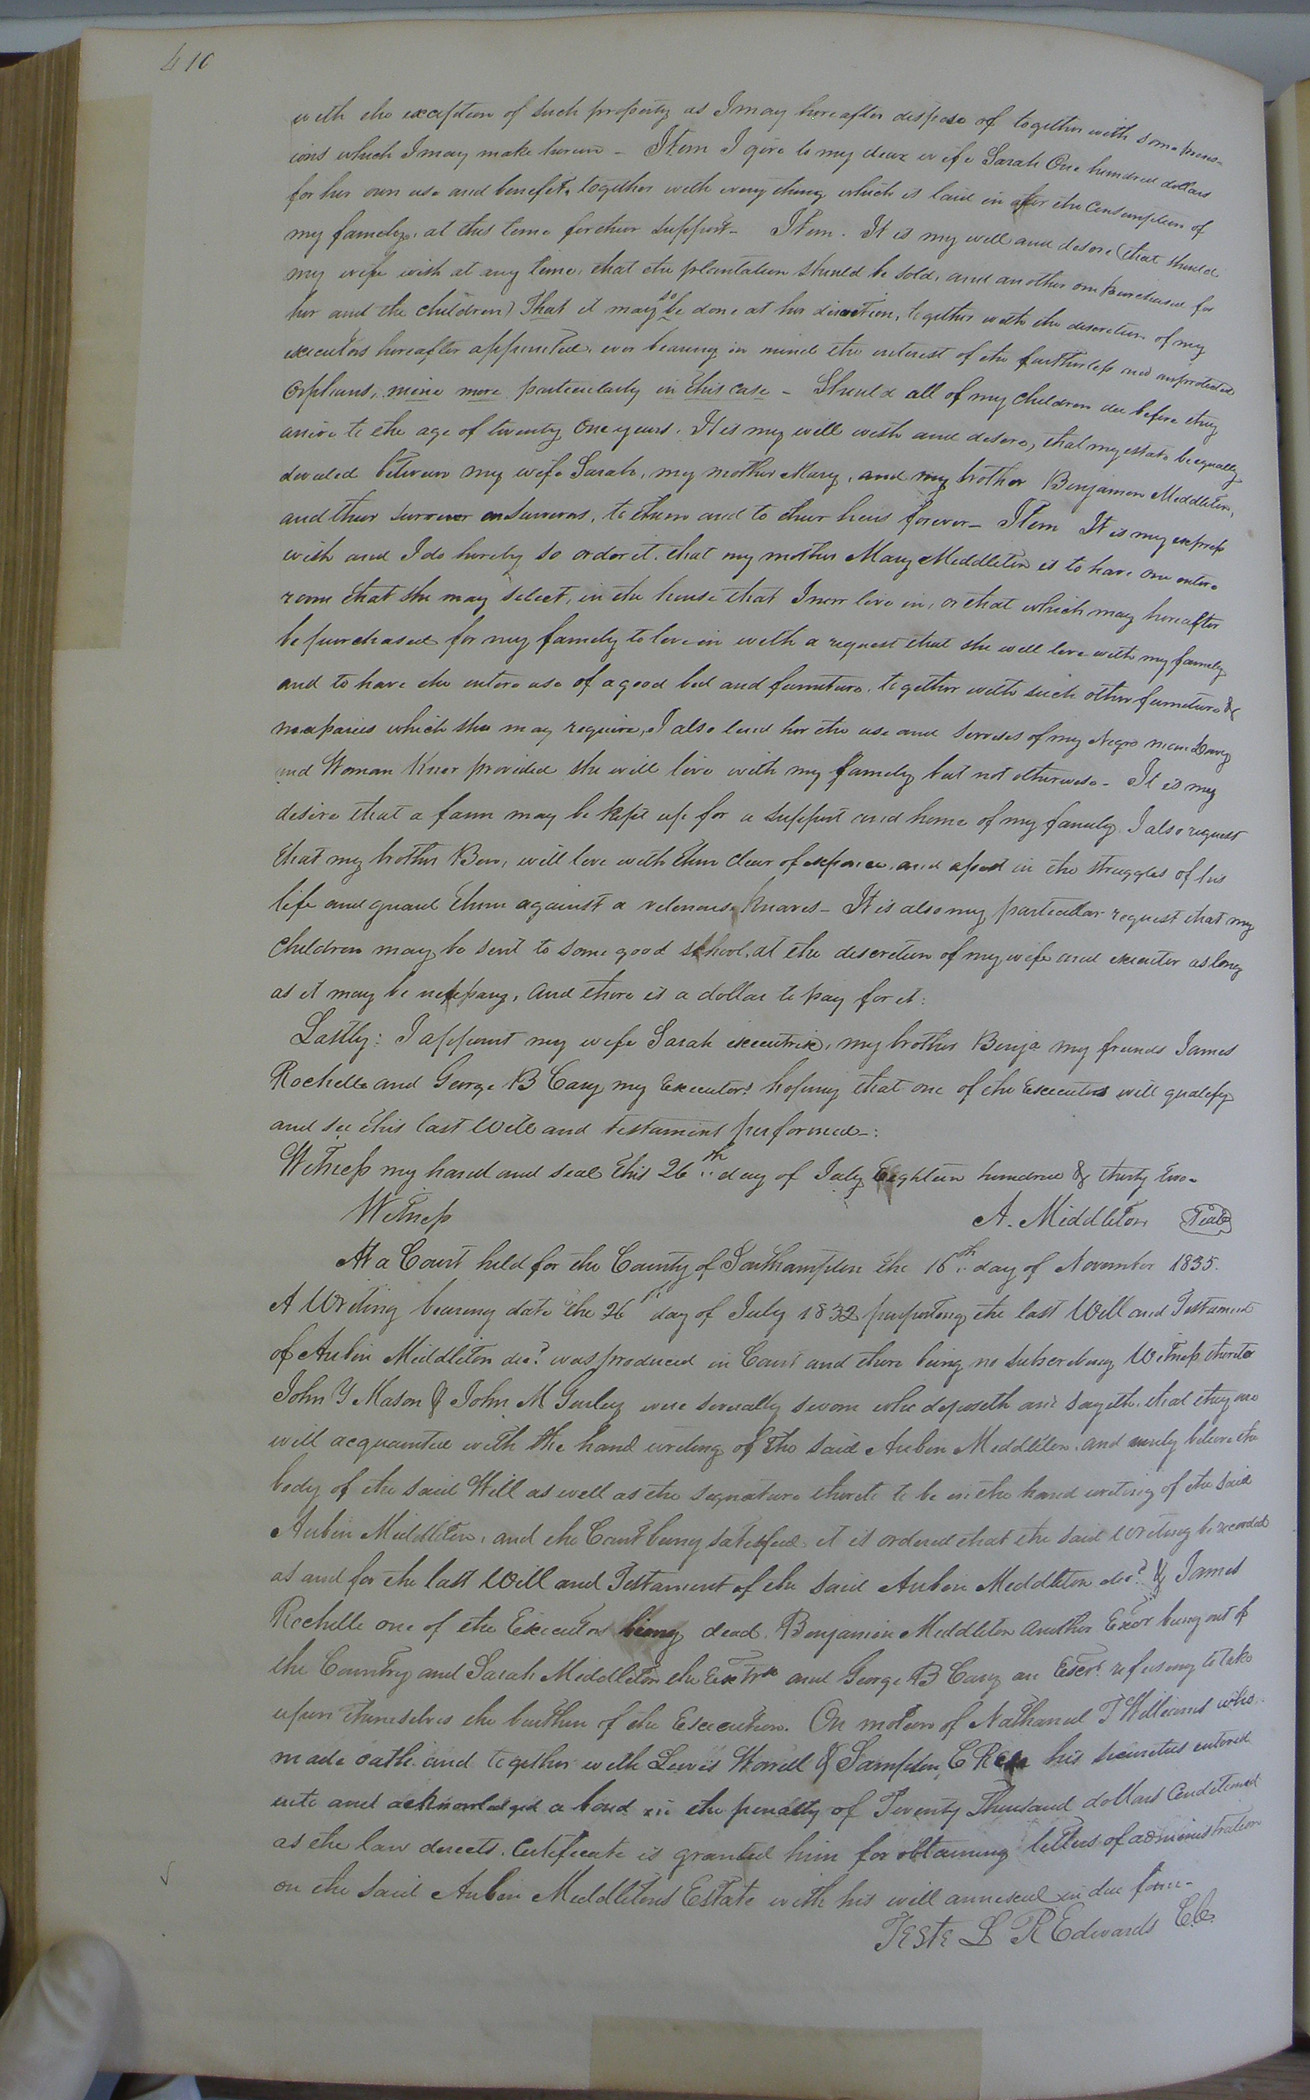 410
with the exception of such property as I may hereafter dispose of together with some provis-
ions which I may make herein - Item I give to my dear wife Sarah One hundred dollars
for her own use and benefit, together with every thing which is laid in for the Consumption of
my family, at this time for their support - Item. It is my will and desire (that should
my wife wish at any time, that the plantation should be sold, and another one purchased for
her and the children) That it may so be done at her discretion, together with the discretion of my
executors hereafter appointed, ever bearing in mind the interest of the fatherless and unprotected
Orphans, mine more particularly in this case - Should all of my children die before they
arrive to the age of twenty One years. It is my will wish and desire, that my estate be equally
devided between my wife Sarah, my mother Mary, and my brother Benjamin Middleton,
and their survivor or survivors, to them and to their heirs forever - Item It is my express
wish and I do hereby so order it. that my mother Mary Middleton is to have one entire
room that she may select, in the house that I now live in, or that which may hereafter
be purchased for my family to live in with a request that she will live with my family
and to have the entire use of a good bed and furniture, together with such other furniture &
necessaries which she may require, I also lend her the use and services of my Negro man Davy
and Woman provided she will live with my family but not otherwise - It is my
desire that a farm may be kept up for a support and home of my family. I also request
that my brother Ben, will live with them clear of expence, and assist in the struggles of his
life and guard them against a velenous Knaves - It is also my particular request that my
children may be sent to some good school, at the discretion of my wife and executor as long
as it may be necessary, and there is a dollar to pay for it:
Lastly: I appoint my wife Sarah executrix, my brother Benja my friends James
Rochelle and George B Cary my Executors hoping that one of the Executors will qualify
and see this last Will and testament performed -:
Witness my hand and seal this 26th day of July Eighteen hundred & thirty two -
Witness A. Middleton Seal
At a Court held for the County of Southampton the 16th day of November 1835.
A Writing bearing date the 26th day of July 1832 purporting the last Will and Testament
of Aubin Middleton decd. was produced in Court and there being no subscribing Witness thereto
John Y Mason & John M Gurley were severally sworn who deposeth and sayeth, that they are
well acquainted with the hand writing of the said Aubin Middleton, and verily believe the
body of the said Will as well as the signature thereto to be in the hand writing of the said
Aubin Middleton, and the Court being satisfied, it is ordered that the said Writing be recorded
as and for the last Will and Testament of the said Aubin Middleton decd. & James
Rochelle one of the Executors being dead, Benjamin Middleton another Exor being out of
the Country and Sarah Middleton the Extrx and George B Cary an Exor. refusing to take
upon themselves the burthen of the Execution. On motion of Nathaniel T Williams who
made oath and together with Lewis Worrell & Sampson C Reese his securities entered
into and acknowledged a bond in the penalty of Twenty Thousand dollars Conditioned
as the law directs. Certificate is granted him for obtaining letters of administration
on the said Aubin Middletons Estate with his will annexed in due form -
Teste L R Edwards C.C.